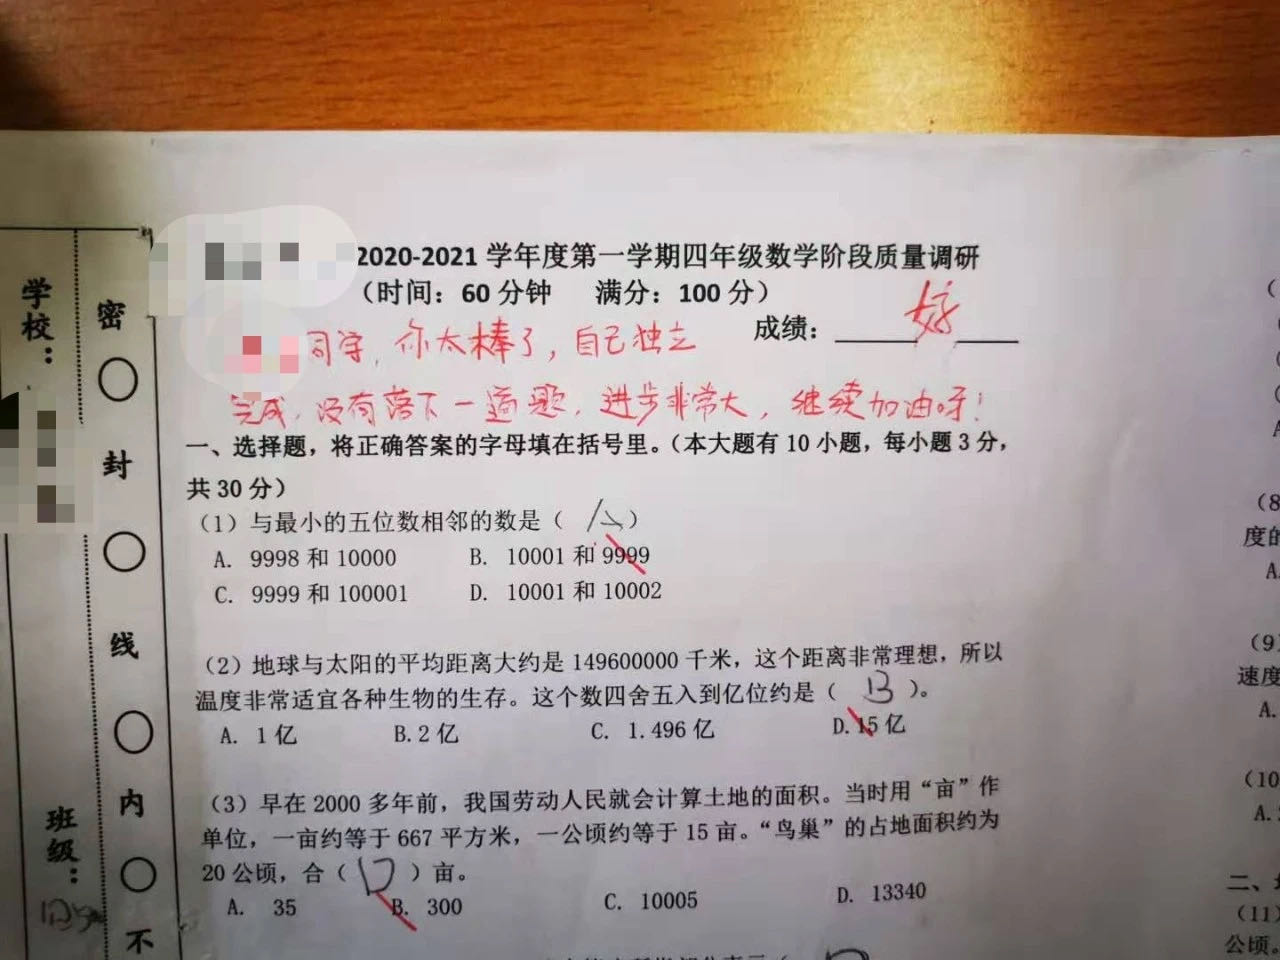 2020-2021 学年度第一学期四年级数学阶段质量调研
（时间：60 分钟 满分：100 分）
成绩：
同学，你太棒了，自己独立
完成，没有落下一道题，进步非常大，继续加油呀！
一、选择题，将正确答案的字母填在括号里。（本大题有 10 小题，每小题 3 分，
共 30 分）
（1）与最小的五位数相邻的数是（ ）
A. 9998 和 10000 B. 10001 和 9999
C. 9999 和 100001 D. 10001 和 10002
（2）地球与太阳的平均距离大约是 149600000 千米，这个距离非常理想，所以
温度非常适宜各种生物的生存。这个数四舍五入到亿位约是（ B ）。
A. 1 亿 B.2 亿 C. 1.496 亿 D.15 亿
（3）早在 2000 多年前，我国劳动人民就会计算土地的面积。当时用“亩”作
单位，一亩约等于 667 平方米，一公顷约等于 15 亩。“鸟巢”的占地面积约为
20 公顷，合（ D ）亩。
A. 35 B. 300 C. 10005 D. 13340
学校：
班级：
密
封
线
内
不
（8
度的
A.
（9）
速度
A.
（10
A.
二、
（11）
公顷。